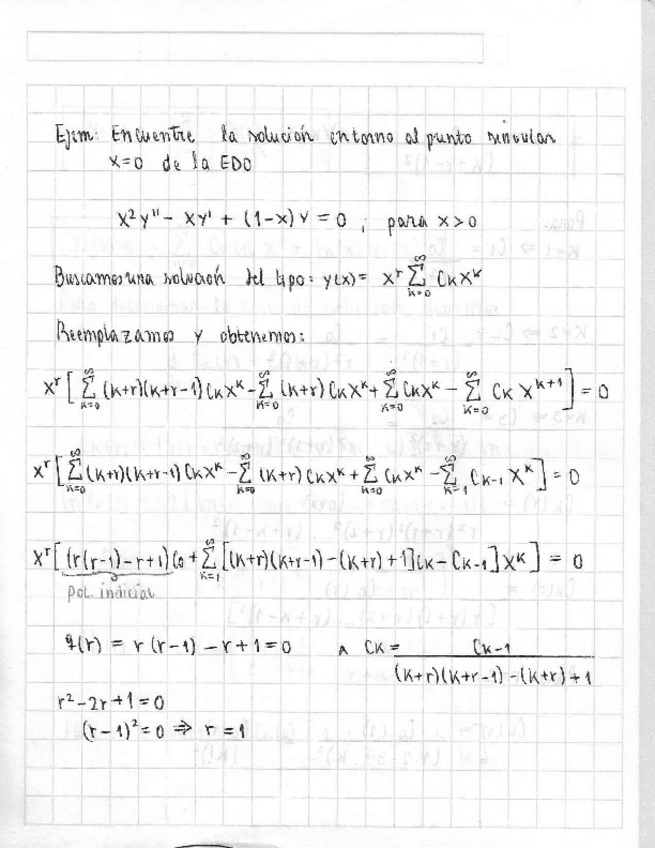 Ejem: Encuentre la solución entorno al punto singular
x=0 de la EDO
x²y'' - xy' + (1-x)y = 0 ; para x>0
Buscamos una solución del tipo: y(x) = x^r ∑_{k=0}^{∞} C_k x^k
Reemplazamos y obtenemos:
x^r [ ∑_{k=0}^{∞} (k+r)(k+r-1) C_k x^k - ∑_{k=0}^{∞} (k+r) C_k x^k + ∑_{k=0}^{∞} C_k x^k - ∑_{k=0}^{∞} C_k x^{k+1} ] = 0
x^r [ ∑_{k=0}^{∞} (k+r)(k+r-1) C_k x^k - ∑_{k=0}^{∞} (k+r) C_k x^k + ∑_{k=0}^{∞} C_k x^k - ∑_{k=1}^{∞} C_{k-1} x^k ] = 0
x^r [ (r(r-1)-r+1) C_0 + ∑_{k=1}^{∞} [[(k+r)(k+r-1) - (k+r) + 1] C_k - C_{k-1}] x^k ] = 0
pol. indicial
q(r) = r(r-1) - r + 1 = 0 ∧ C_k = C_{k-1} / ((k+r)(k+r-1) - (k+r) + 1)
r² - 2r + 1 = 0
(r-1)² = 0 ⇒ r = 1